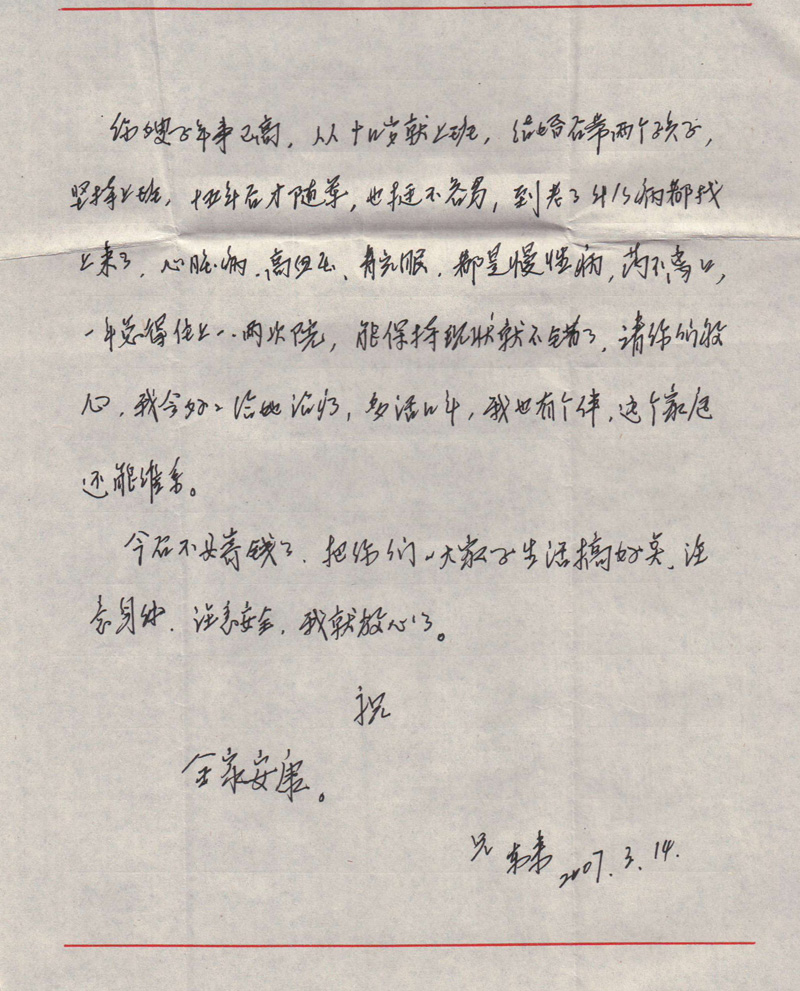 你嫂子年事已高，从十几岁就上班，结婚后带两个孩子，
坚持上班，十五年后才随军，也挺不容易，到老了什么病都找
上来了，心脏病、高血压、青光眼，都是慢性病，药不离口，
一年总得住上一、两次院，能保持现状就不错了，请你们放
心，我会好好给她治疗，多活几年，我也有个伴，这个家庭
还能维系。
今后不要寄钱了，把你们一大家子生活搞好点，注
意身体，注意安全，我就放心了。
祝
全家安康。
兄 2007.3.14.